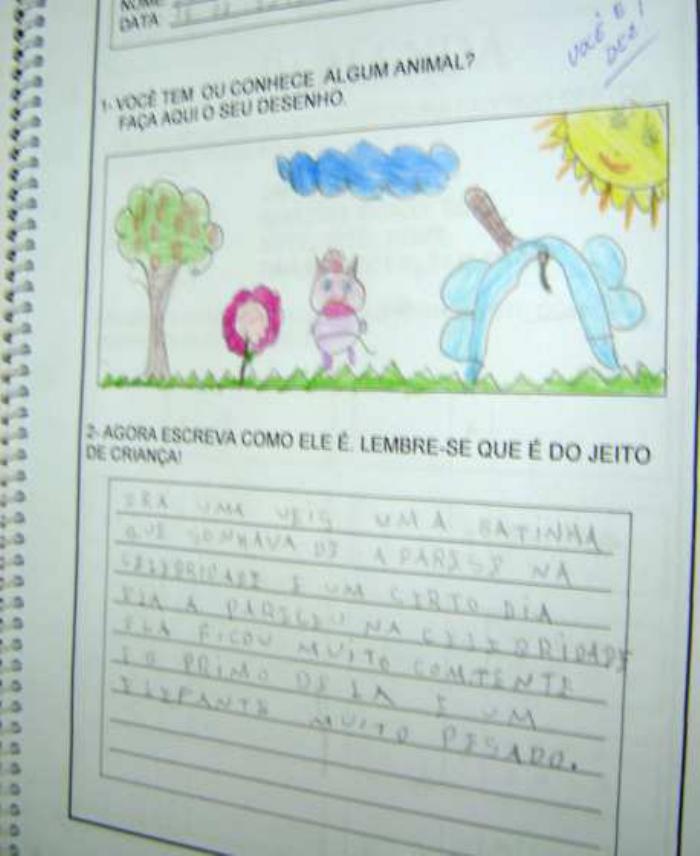 NOME
DATA
VOCÊ É
DEZ!
1- VOCÊ TEM OU CONHECE ALGUM ANIMAL?
FAÇA AQUI O SEU DESENHO.
2- AGORA ESCREVA COMO ELE É. LEMBRE-SE QUE É DO JEITO
DE CRIANÇA!
ERA UMA VEIS UMA GATINHA
QUE SONHAVA DE APARESE NA
SELEBRIDADE E UM CERTO DIA
ELA A PARECEU NA CELEBRIDADE
ELA FICOU MUITO COMTENTE
E O PRIMO DE LA E UM
ELEFANTE MUITO PESADO.